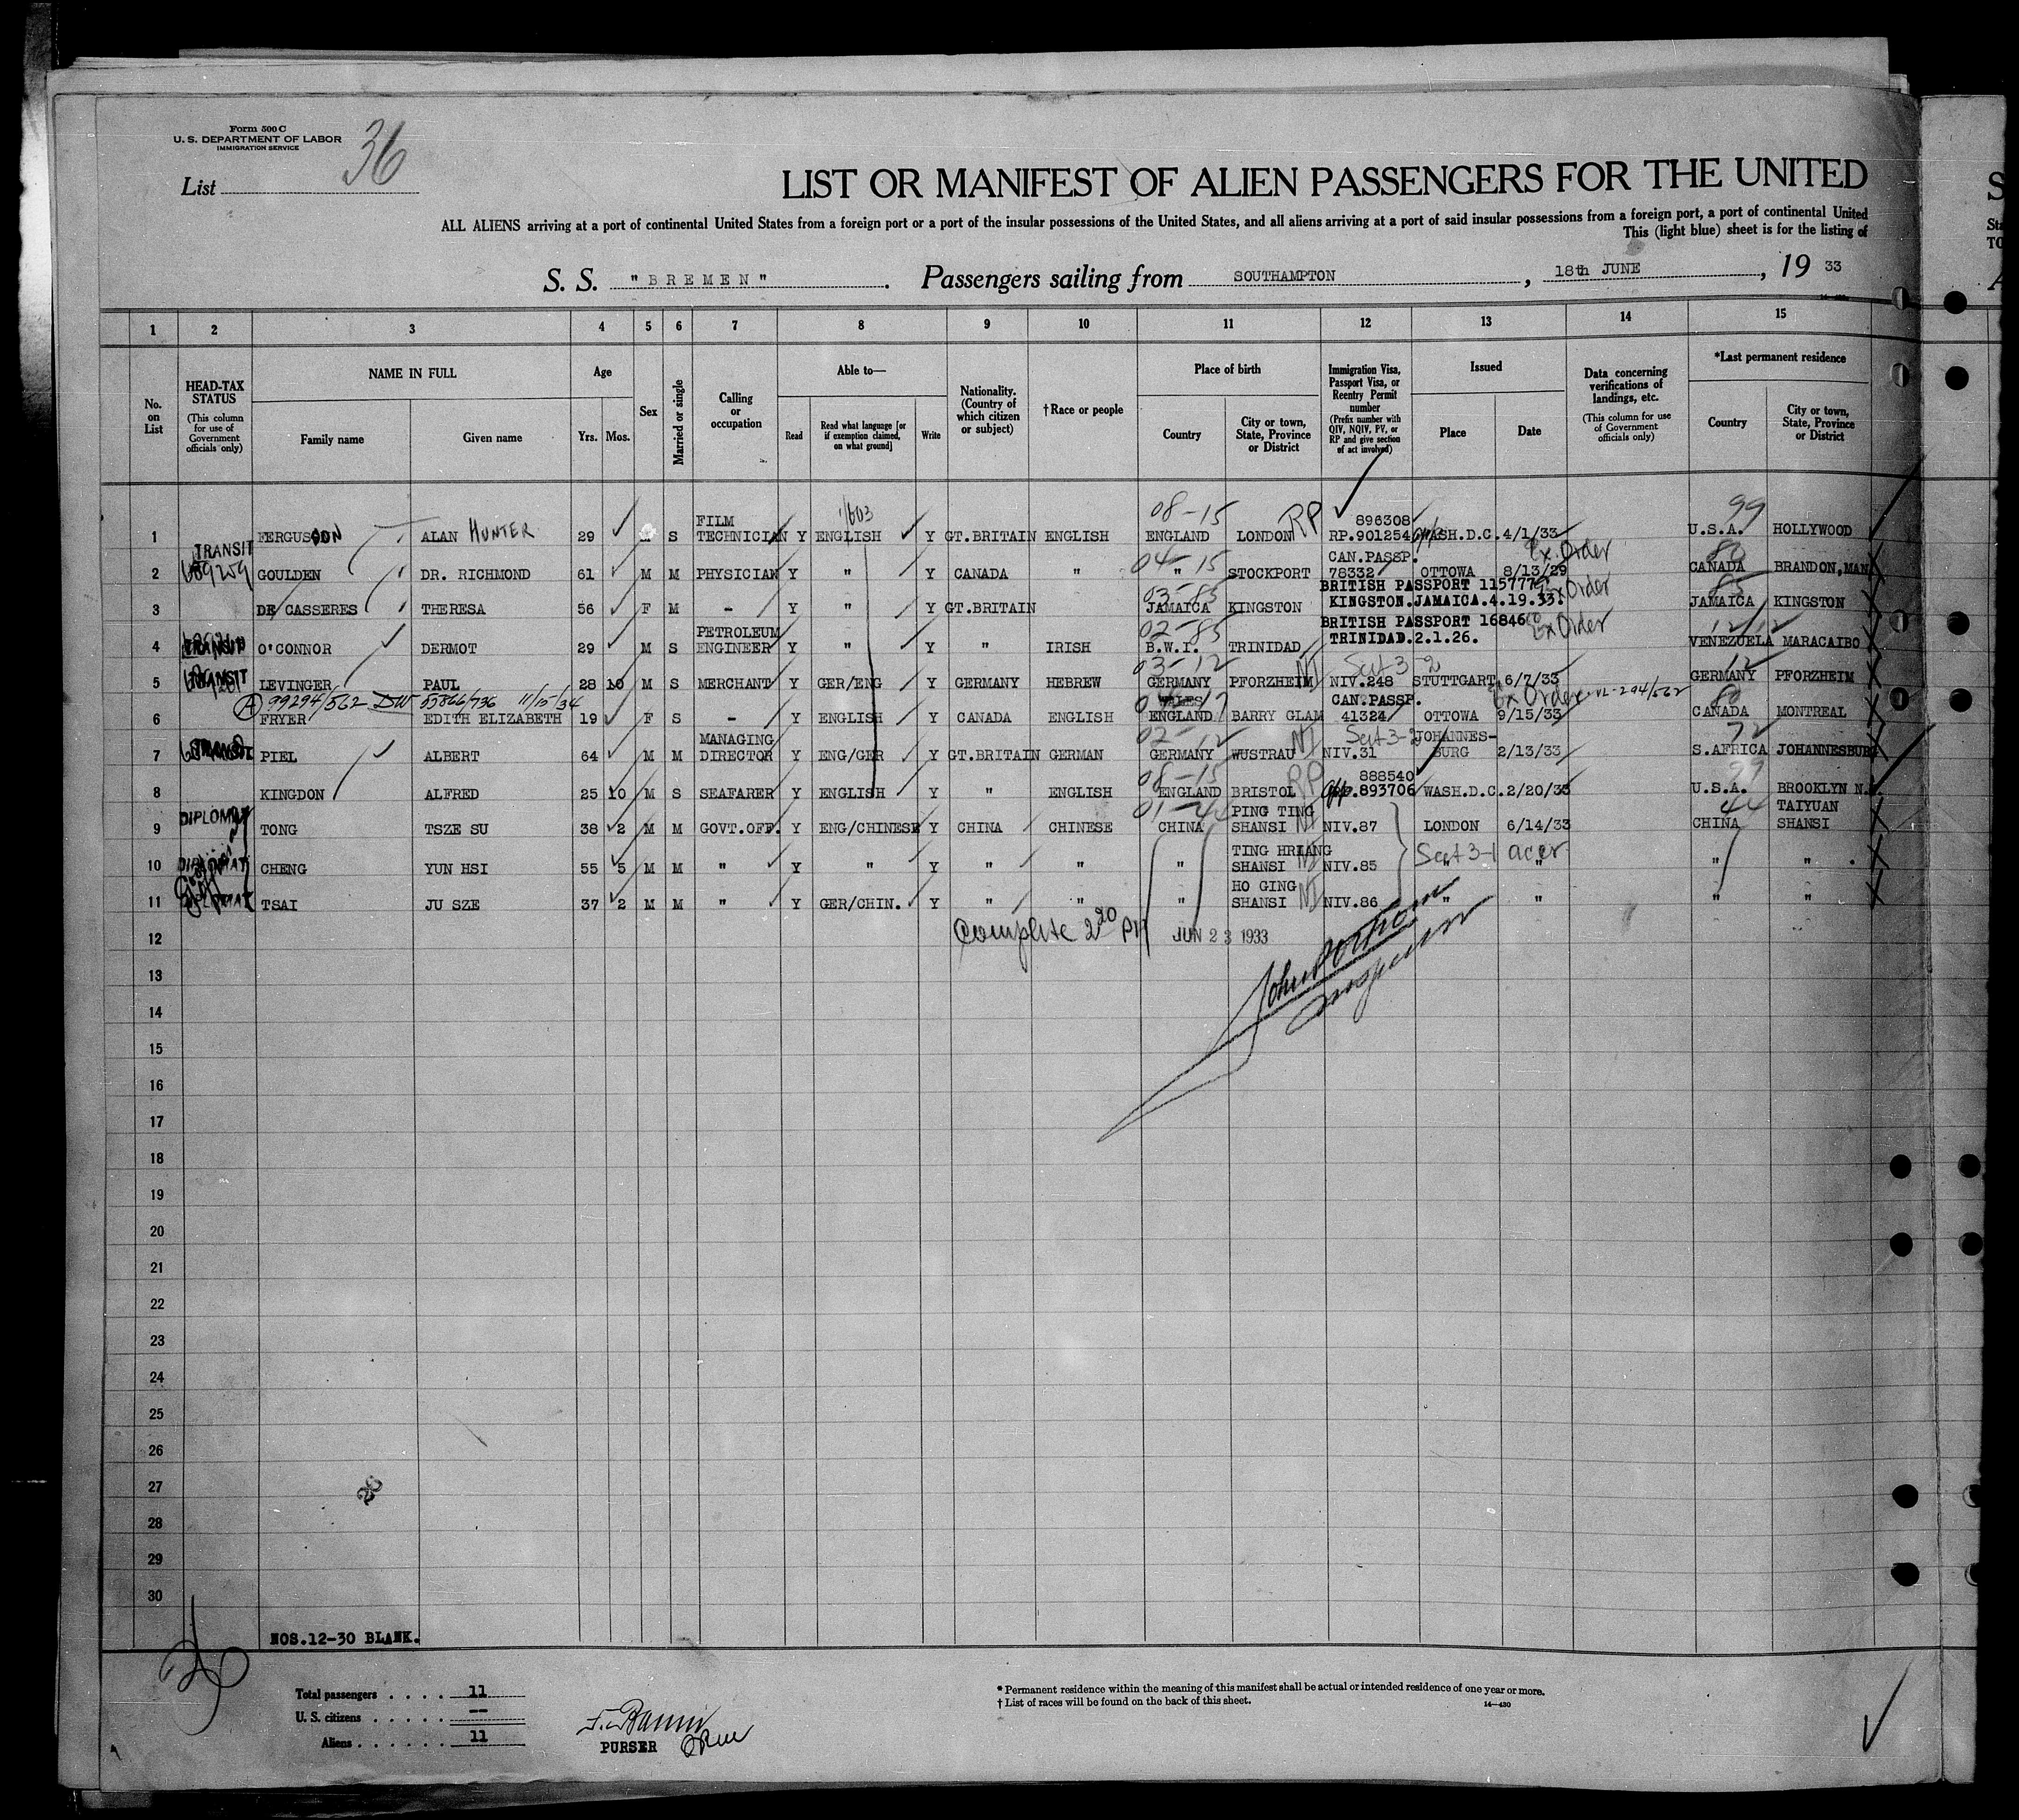 Form 500 C
U. S. DEPARTMENT OF LABOR
IMMIGRATION SERVICE
List 36
LIST OR MANIFEST OF ALIEN PASSENGERS FOR THE UNITED
ALL ALIENS arriving at a port of continental United States from a foreign port or a port of the insular possessions of the United States, and all aliens arriving at a port of said insular possessions from a foreign port, a port of continental United
This (light blue) sheet is for the listing of
S. S. "BREMEN". Passengers sailing from SOUTHAMPTON, 18th JUNE, 19 33
1 2 3 4 5 6 7 8 9 10 11 12 13 14 15
No. on List
HEAD-TAX STATUS (This column for use of Government officials only)
NAME IN FULL Family name Given name
Age Yrs. Mos.
Sex
Married or single
Calling or occupation
Able to— Read Read what language [or if exemption claimed, on what ground] Write
Nationality. (Country of which citizen or subject)
† Race or people
Place of birth Country City or town, State, Province or District
Immigration Visa, Passport Visa, or Reentry Permit number (Prefix number with QIV, NQIV, PV, or RP and give section of act involved)
Issued Place Date
Data concerning verifications of landings, etc. (This column for use of Government officials only)
*Last permanent residence Country City or town, State, Province or District
08-15 RP 896308 99
1 FERGUSON ALAN HUNTER 29 S FILM TECHNICIAN Y ENGLISH Y GT.BRITAIN ENGLISH ENGLAND LONDON RP.901254 WASH.D.C. 4/1/33 U.S.A. HOLLYWOOD
TRANSIT 04-15 CAN.PASSP. Ex. Order
2 GOULDEN DR. RICHMOND 61 M M PHYSICIAN Y " Y CANADA " " STOCKPORT 78332 OTTOWA 8/13/29 CANADA BRANDON, MAN
03-85 BRITISH PASSPORT 115777 Ex Order 85
3 DE CASSERES THERESA 56 F M - Y " Y GT.BRITAIN JAMAICA KINGSTON KINGSTON.JAMAICA.4.19.33. JAMAICA KINGSTON
02-85 BRITISH PASSPORT 168460 Ex Order
4 TRANSIT O'CONNOR DERMOT 29 M S PETROLEUM ENGINEER Y " Y " IRISH B.W.I. TRINIDAD TRINIDAD.2.1.26. VENEZUELA MARACAIBO
03-12 NI Sect 3-2 12
5 TRANSIT LEVINGER PAUL 28 10 M S MERCHANT Y GER/ENG Y GERMANY HEBREW GERMANY PFORZHEIM NIV.248 STUTTGART 6/7/33 GERMANY PFORZHEIM
A 99294/562 DW 55866/736 11/15/34 WALES CAN.PASSP. Ex Order VL-294/562
6 FRYER EDITH ELIZABETH 19 F S - Y ENGLISH Y CANADA ENGLISH ENGLAND BARRY GLAM 41324 OTTOWA 9/15/33 CANADA MONTREAL
02-12 NI Sect 3-2 72
7 TRANSIT PIEL ALBERT 64 M M MANAGING DIRECTOR Y ENG/GER Y GT.BRITAIN GERMAN GERMANY WUSTRAU NIV.31 JOHANNES-BURG 2/13/33 S.AFRICA JOHANNESBURG
08-15 RP 888540 99
8 KINGDON ALFRED 25 10 M S SEAFARER Y ENGLISH Y " ENGLISH ENGLAND BRISTOL 893706 WASH.D.C. 2/20/33 U.S.A. BROOKLYN N.
DIPLOMAT 01-44 PING TING NI 44 TAIYUAN
9 TONG TSZE SU 38 2 M M GOVT.OFF. Y ENG/CHINESE Y CHINA CHINESE CHINA SHANSI NIV.87 LONDON 6/14/33 CHINA SHANSI
DIPLOMAT TING HRIANG NI Sect 3-1
10 CHENG YUN HSI 55 5 M M " Y " Y " " " SHANSI NIV.85 " " " "
DIPLOMAT HO GING NI
11 TSAI JU SZE 37 2 M M " Y GER/CHIN. Y " " " SHANSI NIV.86 " " " "
12 Complete 2 20 PM JUN 23 1933
13
14 Inspector
15
16
17
18
19
20
21
22
23
24
25
26
27
28
29
30
NOS.12-30 BLANK.
26
Total passengers 11
U. S. citizens --
Aliens 11
PURSER
* Permanent residence within the meaning of this manifest shall be actual or intended residence of one year or more.
† List of races will be found on the back of this sheet.
14—430